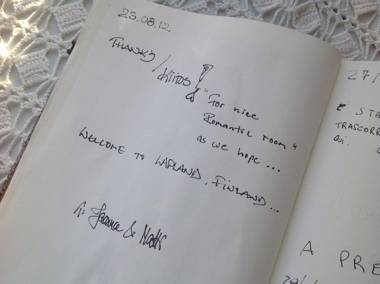 23.08.12.
THANKS
/kiitos!
"For nice
Romantic room"
as we hope...
WELCOME TO LAPLAND, FINLAND...
27/
E STA
TRASCORR
A PRE